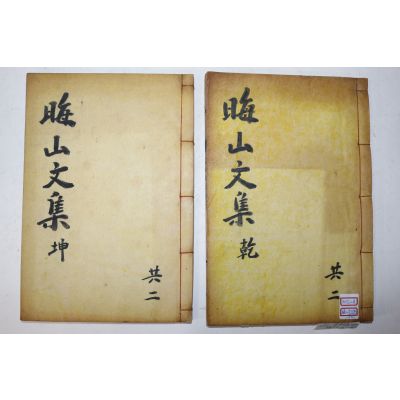 晦山文集 乾
共二
晦山文集 坤
共二